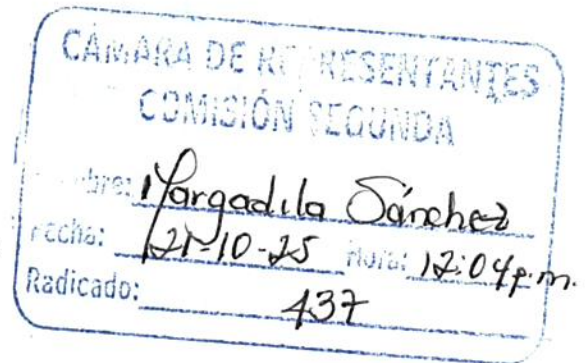 CÁMARA DE REPRESENTANTES
COMISIÓN SEGUNDA
Nombre: Margadila Sánchez
Fecha: 21-10-25 Hora: 12:04 p.m.
Radicado: 437